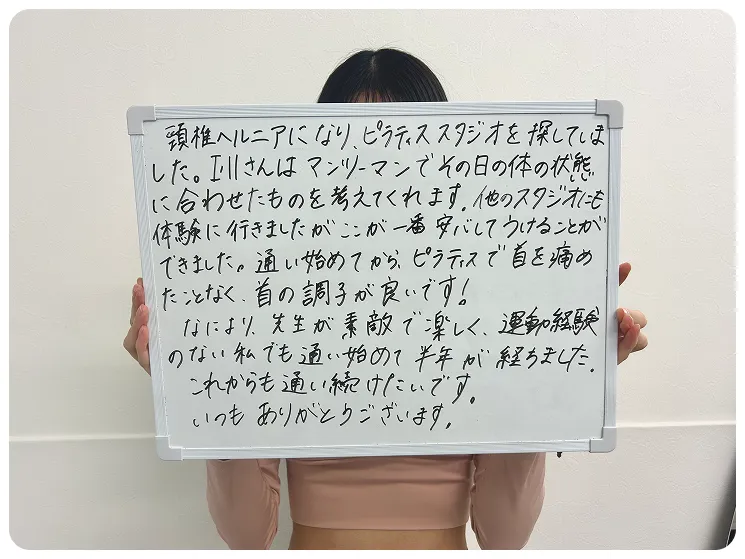 頸椎ヘルニアになり、ピラティススタジオを探していま
した。玉川さんはマンツーマンでその日の体の状態
に合わせたものを考えてくれます。他のスタジオにも
体験に行きましたがここが一番安心してうけることが
できました。通い始めてから、ピラティスで首を痛め
たことなく、首の調子が良いです!
なにより、先生が素敵で楽しく、運動経験
のない私でも通い始めて半年が経ちました。
これからも通い続けたいです。
いつもありがとうございます。